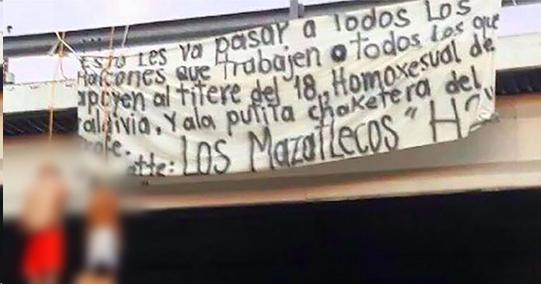 Esto les va pasar a Todos Los
Halcones que Trabajen o Todos Los que
apoyen al titere del 18,, Homoxesual de
aldivia. Y ala putita chaketera del
atte: Los Mazatlecos "H2"